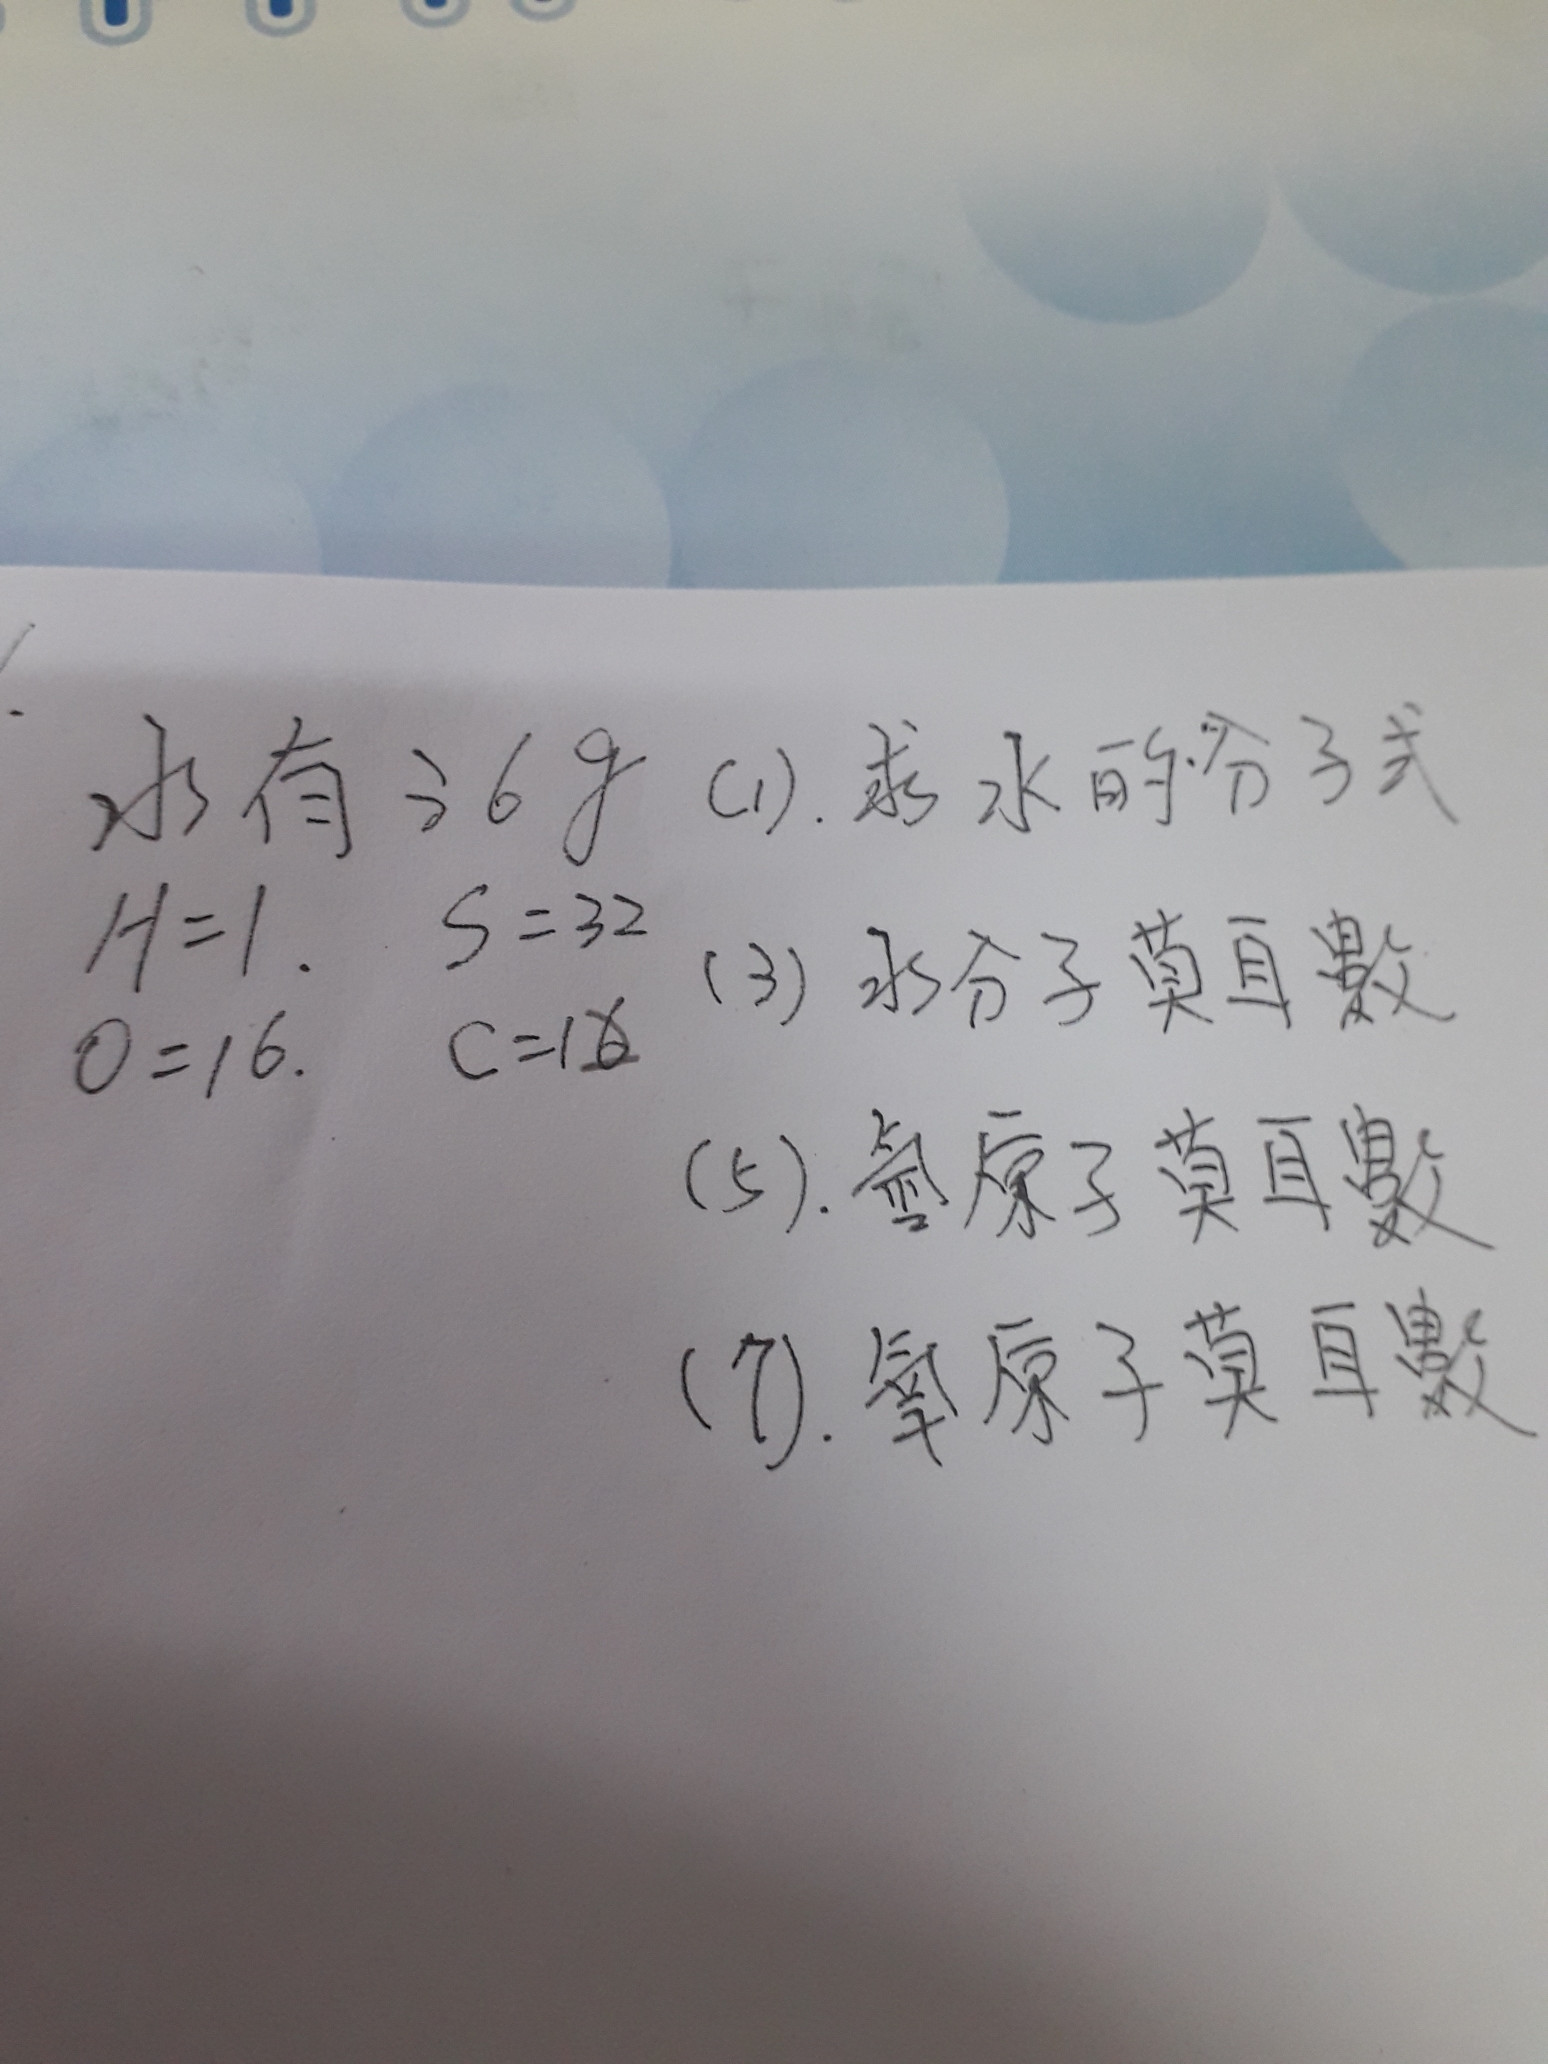 水有36g (1). 求水的分子式
H=1. S=32 (3) 水分子莫耳數
O=16. C=12
(5). 氫原子莫耳數
(7). 氧原子莫耳數